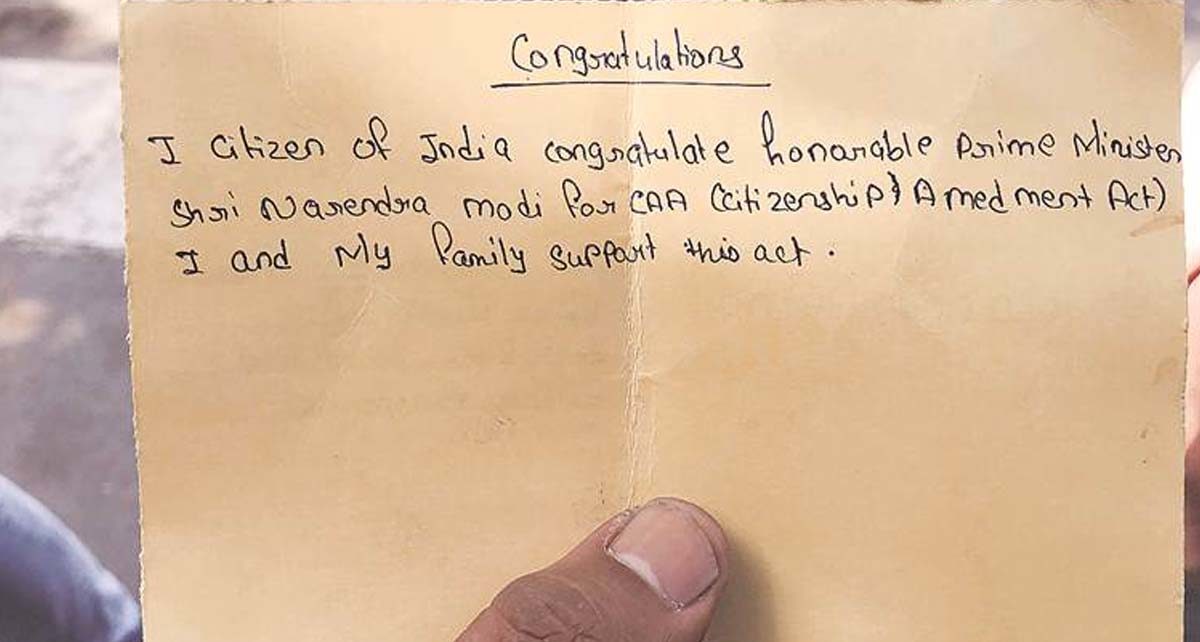 Congratulations
I citizen of India congratulate honarable Prime Minister
Shri Narendra modi for CAA (citizenship & Amedment Act)
I and My family support this act.